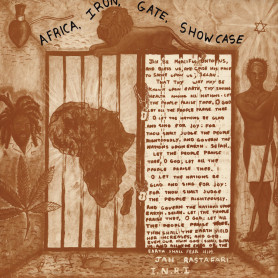 AFRICA, IRON, GATE, SHOWCASE
GOD BE MERCIFUL UNTO US,
AND BLESS US, AND CAUSE HIS FACE
TO SHINE UPON US; SELAH.
THAT THY WAY MAY BE
KNOWN UPON EARTH, THY SAVING
HEALTH AMONG ALL NATIONS. LET
THE PEOPLE PRAISE THEE, O GOD
LET ALL THE PEOPLE PRAISE THEE.
O LET THE NATIONS BE GLAD
AND SING FOR JOY: FOR
THOU SHALT JUDGE THE PEOPLE
RIGHTEOUSLY, AND GOVERN THE
NATIONS UPON EARTH. SELAH.
LET THE PEOPLE PRAISE
THEE, O GOD; LET ALL THE
PEOPLE PRAISE THEE.
O LET THE NATIONS BE
GLAD AND SING FOR JOY:
FOR THOU SHALT JUDGE
THE PEOPLE RIGHTEOUSLY,
AND GOVERN THE NATIONS UPON
EARTH. SELAH. LET THE PEOPLE PRAISE
THEE, O GOD; LET ALL
THE PEOPLE PRAISE THEE.
THEN SHALL THE EARTH YIELD
HER INCREASE; AND GOD
EVEN OUR OWN GOD SHALL BLESS
EARTH SHALL FEAR HIM
JAH RASTAFARI
I.N.R.I.